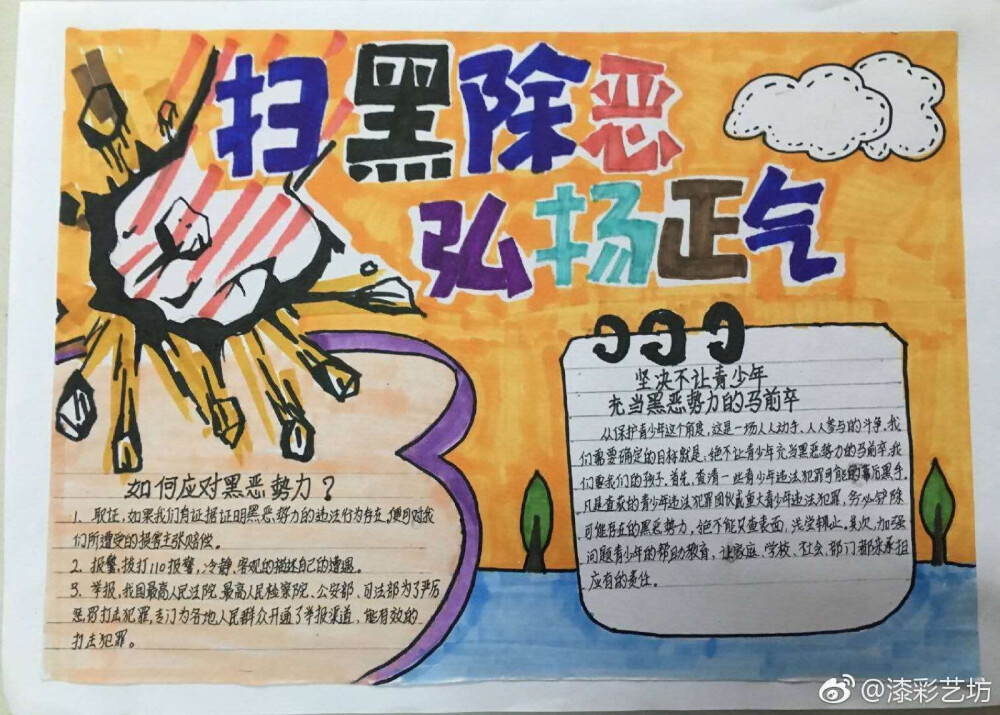 扫黑除恶
弘扬正气
如何应对黑恶势力?
1、取证,如果我们有证据证明黑恶势力的违法行为存在,便可对我
们所遭受的损害主张赔偿。
2、报警,拨打110报警,冷静、客观的描述自己的遭遇。
3、举报,我国最高人民法院、最高人民检察院、公安部、司法部为了严厉
惩罚打击犯罪,专门为各地人民群众开通了举报渠道,能有效的
打击犯罪。
坚决不让青少年
充当黑恶势力的马前卒
从保护青少年这个角度,这是一场人人动手、人人参与的斗争。我
们需要确定的目标就是:绝不让青少年充当黑恶势力的马前卒,我
们要我们的孩子。首先,查清一些青少年违法犯罪可能的幕后黑手,
凡是查获的青少年违法犯罪团伙或重大青少年违法犯罪,务必铲除
可能存在的黑恶势力,绝不能只查表面,浅尝辄止。其次,加强
问题青少年的帮助教育,让家庭、学校、社会、部门都来承担
应有的责任。
@漆彩艺坊